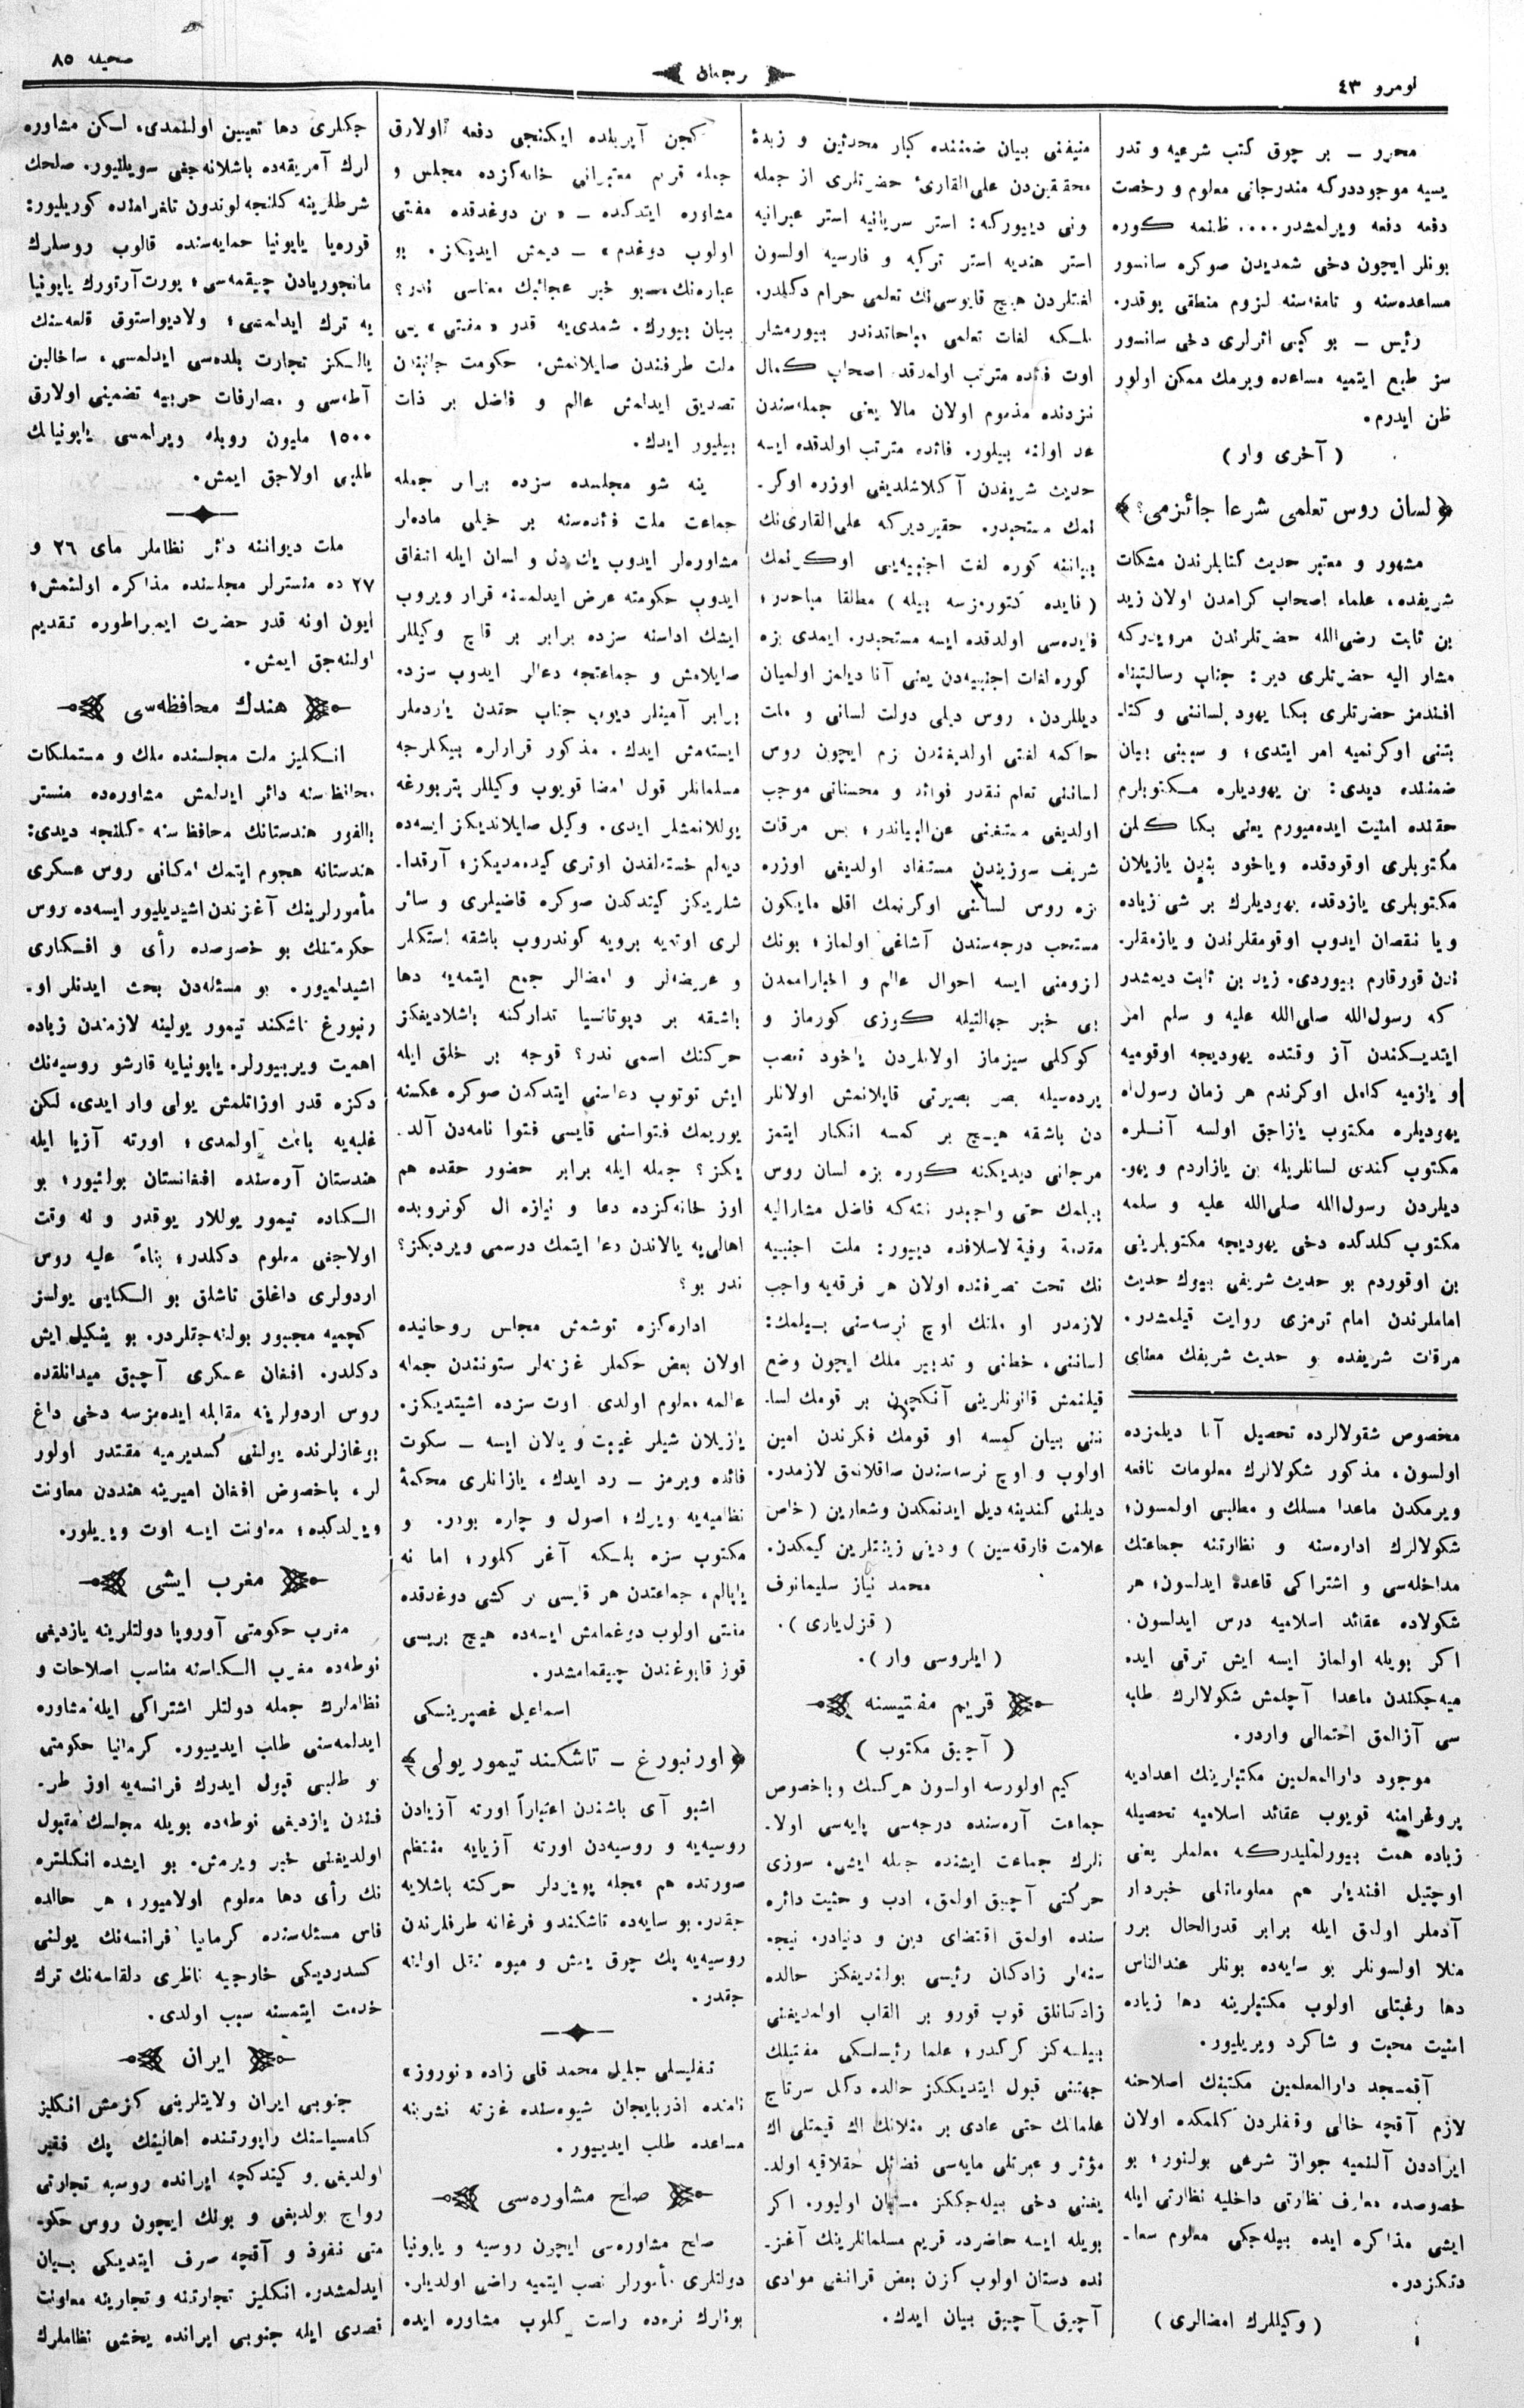 نومرو ٤٣
ترجمان
صحیفه ٨٥
محرر — بر چوق کتب شرعیه و تدر
یسیه موجوددرکه مندرجاتی معلوم و رخصت
دفعه دفعه ویرلمشدر.... ظنمه کوره
بونلر ایچون دخی شمدیدن صوکره سانسور
مساعده‌سنه و تامغاسنه لزوم منطقی یوقدر.
رئیس — بو کبی اثرلری دخی سانسور
سز طبع ایتمیه مساعده ویرمك ممکن اولور
ظن ایدرم.
( آخری وار )
﴿ لسان روس تعلمی شرعا جائزمی؟ ﴾
مشهور و معتبر حدیث کتابلرندن مشکات
شریفده، علماء اصحاب کرامدن اولان زید
بن ثابت رضی‌الله حضرتلرندن مرویدرکه
مشار الیه حضرتلری دیر: جناب رسالتپناه
افندمز حضرتلری بکا یهود لسانی و کتا-
بتنی اوکرنمیه امر ایتدی؛ و سببنی بیان
ضمننده دیدی: بن یهودیلره مکتوبلرم
حقنده امنیت ایده‌میورم یعنی بکا کلن
مکتوبلری اوقودقده ویاخود بندن یازیلان
مکتوبلری یازدقده یهودیلرك بر شی زیاده
و یا نقصان ایدوب اوقومقلرندن و یازمقلر-
ندن قورقارم بیوردی. زید بن ثابت دیمشدر
که رسول‌الله صلی‌الله علیه و سلم امر
ایتدیکندن آز وقتده یهودیجه اوقومیه
و یازمیه کامل اوکرندم هر زمان رسول‌الله
یهودیلره مکتوب یازاجق اولسه آنلره
مکتوب کندی لسانلریله بن یازاردم و یهو-
دیلردن رسول‌الله صلی‌الله علیه و سلمه
مکتوب کلدکده دخی یهودیجه مکتوبلرینی
بن اوقوردم بو حدیث شریفی بیوك حدیث
اماملرندن امام ترمزی روایت قیلمشدر.
مرقات شریفده و حدیث شریفك معنای
مخصوص شقولالرده تحصیل آنا دیلمزده
اولسون، مذکور شکولالرك معلومات نافعه
ویرمکدن ماعدا مسلك و مطالبی اولمسون؛
شکولالرك اداره‌سنه و نظارتنه جماعتك
مداخله‌سی و اشتراکی قاعده ایدلسون؛ هر
شکولاده عقائد اسلامیه درس ایدلسون.
اکر بویله اولماز ایسه ایش ترقی ایده
میه‌جکندن ماعدا آچلمش شکولالرك طلبه
سی آزالمق احتمالی واردر.
موجود دارالمعلمین مکتبلرینك اعدادیه
پروغرامنه قویوب عقائد اسلامیه تحصیله
زیاده همت بیورلملیدرکه معلملر یعنی
اوچتیل افندیلر هم معلوماتلی خبردار
آدملر اولمق ایله برابر قدرالحال برر
منلا اولسونلر بو سایه‌ده بونلر عندالناس
دها رغبتلی اولوب مکتبلرینه دها زیاده
امنیت محبت و شاکرد ویریلیور.
آقمسجد دارالمعلمین مکتبنك اصلاحنه
لازم آقچه خالی وقفلردن کلمکده اولان
ایراددن آلنمیه جواز شرعی بولنور؛ بو
خصوصده معارف نظارتی داخلیه نظارتی ایله
ایشی مذاکره ایده بیله‌جکی معلوم سعا-
دتکزدر.
( وکیللرك امضالری )
منیفنی بیان ضمننده کبار محدثین و زبدۀ
محققین‌دن علی‌القاریٔ حضرتلری از جمله
ونی دییورکه: استر سریانیه استر عبرانیه
استر هندیه استر ترکیه و فارسیه اولسون
لغتلردن هیچ قایوسی‌نك تعلمی حرام دکلدر.
بلکه لغات تعلمی مباحاتدندر بیورمشلر
اوت فائده مترتب اولمدقده اصحاب کمال
نزدنده مذموم اولان مالا یعنی جمله‌سندن
عد اولنه بیلور. فائده مترتب اولدقده ایسه
حدیث شریفدن آکلاشلدیغی اوزره اوکر-
نمك مستحبدر. حقیردیرکه علی‌القاری‌نك
بیاننه کوره لغت اجنبیه‌یی اوکرنمك
( فایده کتورمزسه بیله ) مطلقا مباحدر؛
فایده‌سی اولدقده ایسه مستحبدر. ایمدی بزه
کوره لغات اجنبیه‌دن یعنی آنا دیلمز اولمیان
دیللردن، روس دیلی دولت لسانی و ملت
حاکمه لغتی اولدیغندن بزم ایچون روس
لسانی تعلم نقدر فوائد و محسناتی موجب
اولدیغی مستغنی عن‌البیاندر؛ پس مرقات
شریف سوزیندن مستفاد اولدیغی اوزره
بزه روس لسانی اوکرنمك اقل مایکون
مستحب درجه‌سندن آشاغی اولماز؛ بونك
لزومنی ایسه احوال عالم و اخبارامم‌دن
بی خبر جهالتیله کوزی کورماز و
کوکلی سیزماز اولانلردن یاخود تعصب
پرده‌سیله بصر بصیرتی قاپلانمش اولانلر
دن باشقه هیچ بر کمسه انکار ایتمز
مرجانی دیدیکنه کوره بزه لسان روس
بیلمك حتی واجبدر نته‌که فاضل مشارالیه
مقدمۀ وفیة‌لاسلافده دییور: ملت اجنبیه
نك تحت تصرفنده اولان هر فرقه‌یه واجب
لازمدر او ملتك اوچ نرسه‌سنی بیلمك:
لسانی، خطنی و تدبیر ملك ایچون وضع
قیلنمش قانونلرینی آنکچون بر قومك لسا-
ننی بیان کمسه او قومك فکرندن امین
اولوب و اوچ نرسه‌سندن صاقلانمق لازمدر.
دیلنی کندینه دیل ایدنمکدن وشعارین ( خاص
علامت فارقه‌سین ) ودینی زینتلرین کیمکدن.
محمد نیاز سلیمانوف
( قزل‌یاری ).
( ایلروسی وار ).
قریم مفتیسنه
( آچیق مکتوب )
کیم اولورسه اولسون هرکسك وباخصوص
جماعت آره‌سنده درجه‌سی پایه‌سی اولا-
نلرك جماعت ایشنده جمله ایشی، سوزی
حرکتی آچیق اولمق، ادب و حثیت دائره
سنده اولمق اقتضای دین و دنیادر. نیجه
سنه‌لر زادکان رئیسی بولندیغکز حالده
زادکانلق قوب قورو بر القاب اولمدیغنی
بیلسه‌کز کرکدر؛ علما رئیسلکی مفتیلك
جهتنی قبول ایتدیککز حالده دکل سرتاج
علمانك حتی عادی بر منلانك اك قیمتلی اك
مؤثر و عبرتلی مایه‌سی فضائل اخلاقیه اولد-
یغنی دخی بیله‌جککز مسیان اولیور. اکر
بویله ایسه حاضرده قریم مسلمانلرینك آغز-
نده دستان اولوب کزن بعض قرانغی موادی
آچیق آچیق بیان ایدك.
کچن آپریلده ایکنجی دفعه اولارق
جمله قریم معتبرانی خانه‌کزده مجلس و
مشاوره ایتدکده — «بن دوغدقده مفتی
اولوب دوغدم» — دیمش ایدیکز. بو
عباره‌نك بو خبر عجائبك معناسی ندر؟
بیان بیورك. شمدی‌یه قدر «مفتی» یی
ملت طرفندن صایلانمش، حکومت جانبندن
تصدیق ایدلمش عالم و فاضل بر ذات
بیلیور ایدك.
ینه شو مجلسده سزده برابر جمله
جماعت ملت فائده‌سنه بر خیلی ماده‌لر
مشاوره‌لر ایدوب یك دل و لسان ایله اتفاق
ایدوب حکومته عرض ایدلمسنه قرار ویروب
ایشك اداسنه سزده برابر بر قاچ وکیللر
صایلانمش و جماعتجه دعالر ایدوب سزده
برابر آمینلر دیوب جناب حقدن یاردملر
ایسته‌مش ایدك. مذکور قرارلره بیکلرجه
مسلمانلر قول امضا قویوب وکیللر پتربورغه
یوللانمشلر ایدی. وکیل صایلاندیکز ایسه‌ده
دیه‌لم خسته‌لقدن اوتری کیده‌مدیکز؛ آرقدا-
شلریکز کیتدکدن صوکره قاضیلری و سائر
لری اوته‌یه برویه کوندروب باشقه استکلر
و عریضه‌لر و امضالر جمع ایتمه‌یه دها
باشقه بر دپوتاتسیا تدارکنه باشلادیغکز
حرکتك اسمی ندر؟ قوجه بر خلق ایله
ایش توتوب دعاسنی ایتدکدن صوکره عکسنه
یوریمك فتواسنی قایسی فتوا نامه‌دن آلد-
یکز؟ جمله ایله برابر حضور حقده هم
اوز خانه‌کزده دعا و نیازه ال کوتروبده
اهالی‌یه یالاندن دعا ایتمك درسمی ویردیکز؟
ندر بو؟
اداره‌کزه توشمش مجلس روحانیده
اولان بعض حکملر غزته‌لر ستوننده‌ن جمله
عالمه معلوم اولدی اوت سزده اشیتدیکز.
یازیلان شیلر غیبت و یالان ایسه — سکوت
فائده ویرمز — رد ایدك، یازانلری محکمۀ
نظامیه‌یه ویرك؛ اصول و چاره بودر. و
مکتوب سزه بلکه آغر کلور؛ اما نه
یاپالم، جماعتدن هر قایسی بر کشی دوغدقده
مفتی اولوب دوغمامش ایسه‌ده هیچ بریسی
قوز قابوغندن چیقمامشدر.
اسماعیل غصپرینسکی
﴿ اورنبورغ — تاشکند تیمور یولی ﴾
اشبو آی باشندن اعتباراً اورته آزیادن
روسیه‌یه و روسیه‌دن اورته آزیایه منتظم
صورتده هم عجله پویزدلر حرکته باشلایه
جقدر. بو سایه‌ده تاشکند و فرغانه طرفلرندن
روسیه‌یه پك چوق یمش و میوه نقل اولنه
جقدر.
تفلیسلی جلیل محمد قلی زاده «نوروز»
نامنده اذربایجان شیوه‌سنده غزته نشرینه
مساعده طلب ایدییور.
صلح مشاوره‌سی
صلح مشاوره‌سی ایچون روسیه و یاپونیا
دولتلری مأمورلر نصب ایتمیه راضی اولدیلر.
بونلرك نره‌ده راست کلوب مشاوره ایده
جکلری دها تعیین اولنمدی، لکن مشاوره
لرك آمریقه‌ده باشلانه‌جغی سویلنیور. صلحك
شرطلرینه کلنجه لوندون تلغرامنده کوریلیور:
قوره‌یا یاپونیا حمایه‌سنده قالوب روسلرك
مانجوریادن چیقمه‌سی؛ پورت‌آرتورك یاپونیا
یه ترك ایدلمسی؛ ولادیواستوق قلعه‌سنك
یالکز تجارت بلده‌سی ایدلمسی، ساخالین
آطه‌سی و مصارفات حربیه تضمینی اولارق
١٥٠٠ ملیون روبله ویرلمسی یاپونیانك
طلبی اولاجق ایمش.
ملت دیواننه دائر نظاملر مای ٢٦ و
٢٧ ده منسترلر مجلسنده مذاکره اولنمش؛
ایون اونه قدر حضرت ایمپراطوره تقدیم
اولنه‌جق ایمش.
هندك محافظه‌سی
انکلیز ملت مجلسنده ملك و مستملکات
محافظه‌سنه دائر ایدلمش مشاوره‌ده منستر
بالفور هندستانك محافظه‌سنه کلنجه دیدی:
هندستانه هجوم ایتمك امکانی روس عسکری
مأمورلرینك آغزندن اشیدیلیور ایسه‌ده روس
حکومتنك بو خصوصده رأی و افکاری
اشیدلمیور. بو مسئله‌دن بحث ایدنلر او-
رنبورغ تاشکند تیمور یولینه لازمندن زیاده
اهمیت ویرییورلر. یاپونیایه قارشو روسیه‌نك
دکزه قدر اوزاتلمش یولی وار ایدی، لکن
غلبه‌یه باعث اولمدی؛ اورته آزیا ایله
هندستان آره‌سنده افغانستان بولنیور؛ بو
الکاده تیمور یوللار یوقدر و نه وقت
اولاجغی معلوم دکلدر؛ بناءً علیه روس
اردولری داغلق تاشلق بو الکایی یولسز
کچمیه مجبور بولنه‌جقلردر. بو ینکیل ایش
دکلدر. افغان عسکری آچیق میدانلقده
روس اردولرینه مقابله ایده‌مزسه دخی داغ
بوغازلرنده یولنی کسدیرمیه مقتدر اولور
لر، باخصوص افغان امیرینه هنددن معاونت
ویرلدکده؛ معاونت ایسه اوت ویریلور.
مغرب ایشی
مغرب حکومتی آوروپا دولتلرینه یازدیغی
نوطه‌ده مغرب الکاسنه مناسب اصلاحات و
نظاملرك جمله دولتلر اشتراکی ایله مشاوره
ایدلمه‌سنی طلب ایدییور. کرمانیا حکومتی
و طلبی قبول ایدرك فرانسه‌یه اوز طر-
فندن یازدیغی نوطه‌ده بویله مجلسك مقبول
اولدیغنی خبر ویرمش. بو ایشده انکلتره
نك رأی دها معلوم اولامیور؛ هر حالده
فاس مسئله‌سنده کرمانیا فرانسه‌نك یولنی
کسدردیکی خارجیه ناظری دلقاسه‌نك ترك
خدمت ایتمسنه سبب اولدی.
ایران
جنوبی ایران ولایتلرینی کزمش انکلیز
کامسیاسنك راپورتنده اهالینك پك فقیر
اولدیغی و کیندکچه ایرانده روسیه تجارتی
رواج بولدیغی و بونك ایچون روس حکو-
متی نفوذ و آقچه صرف ایتدیکی بیان
ایدلمشدر. انکلیز تجارتنه و تجارینه معاونت
قصدی ایله جنوبی ایرانده یخشی نظاملرك